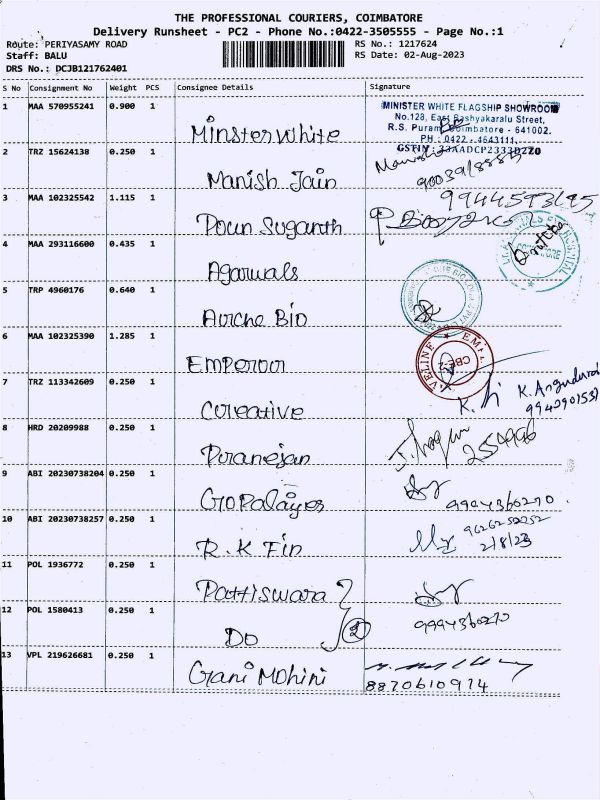 THE PROFESSIONAL COURIERS, COIMBATORE
Delivery Runsheet - PC2 - Phone No.:0422-3505555 - Page No.:1
Route: PERIYASAMY ROAD RS No.: 1217624
Staff: BALU RS Date: 02-Aug-2023
DRS No.: DCJB121762401
S No Consignment No Weight PCS Consignee Details Signature
1 MAA 570955241 0.900 1 Minster White
MINISTER WHITE FLAGSHIP SHOWROOM
No.128, East Bashyakaralu Street,
R.S. Puram, Coimbatore - 641002.
PH : 0422 - 4643111,
GSTIN : 33AADCP2333D2Z0
2 TRZ 15624138 0.250 1 Manish Jain
3 MAA 102325542 1.115 1 Poun Suganth
4 MAA 293116600 0.435 1 Agarwals
5 TRP 4960176 0.640 1 Airche Bio
6 MAA 102325390 1.285 1 Emperoor
CBE-2
7 TRZ 113342609 0.250 1 Coreative
8 HRD 20209988 0.250 1 Piranejan
9 ABI 20230738204 0.250 1 Gopalayer
9994360270
10 ABI 20230738257 0.250 1 R.K Fin
2/8/23
11 POL 1936772 0.250 1 Pattiswara
12 POL 1580413 0.250 1 Do 2
9994360270
13 VPL 219626681 0.250 1 Gani Mohini
8870610974